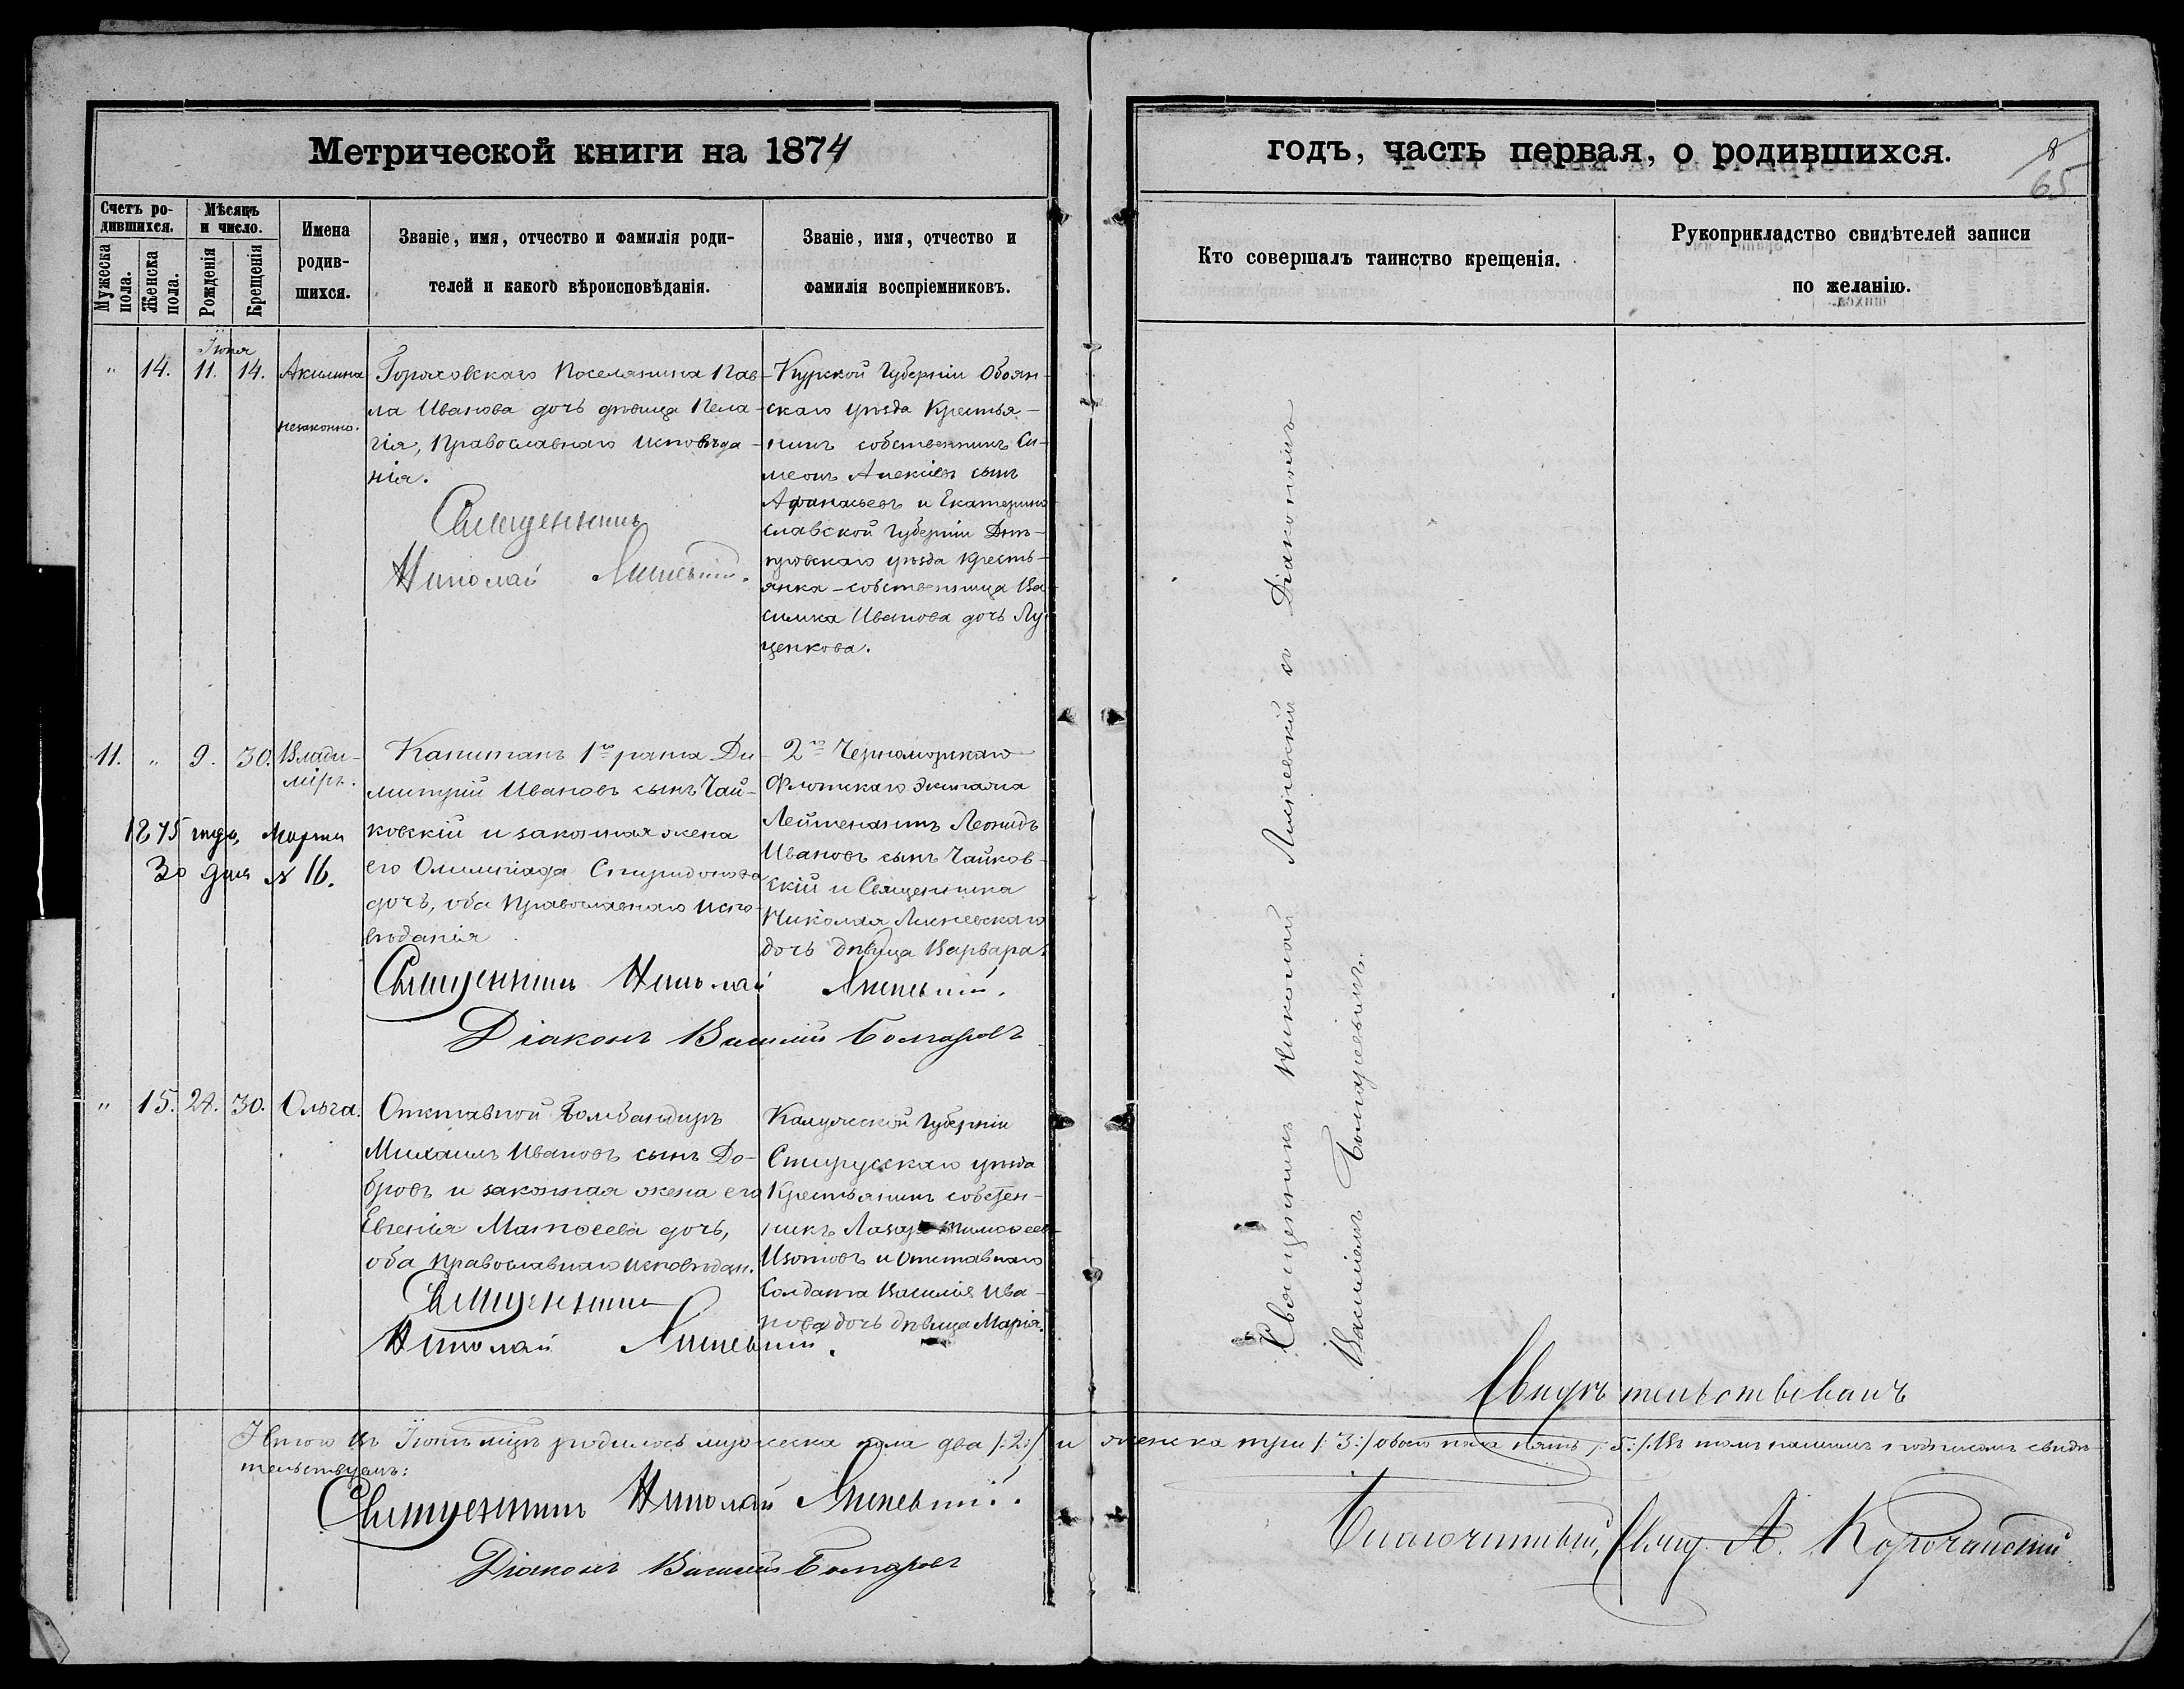 Метрической книги на 1874
годъ, часть первая, о родившихся.
8
65
Счетъ ро-
дившихся.
Мужеска
пола.
Женска
пола.
Мѣсяцъ
и число.
Рожденія
Крещенія
Имена
родив-
шихся.
Званіе, имя, отчество и фамилія роди-
телей и какого вѣроисповѣданія.
Званіе, имя, отчество и
фамилія воспріемниковъ.
Кто совершалъ таинство крещенія.
Рукоприкладство свидѣтелей записи
по желанію.
Іюня
" 14. 11. 14.
Акилина
незаконно.
Гороховскаго Поселянина Пав-
ла Иванова дочь дѣвица Пела-
гія, Православнаго исповѣда-
нія.
Священникъ
Николай Линевскій.
Курской Губерніи Обоян-
скаго уѣзда Крестья-
нинъ собственникъ Си-
меонъ Алексіевъ сынъ
Афанасьевъ и Екатерино
славской Губерніи
уѣзда Кресть-
янка-собственница Ва
силика Иванова дочь Лу
ценкова.
11. " 9. 30.
Влади-
міръ.
1875 года, Марта
30 дня № 16.
Капитанъ 1го ранга Ди
митрій Ивановъ сынъ Чай-
ковскій и законная жена
его Олимпіада Спиридонова
дочь, оба Православнаго испо-
вѣданія
Священникъ Николай Линевскій.
Діаконъ Василій Болгаровъ
2го Черноморскаго
Флотскаго Экипажа
Лейтенантъ Леонидъ
Ивановъ сынъ Чайков-
скій и Священника
Николая Линевскаго
дочь дѣвица Варвара.
" 15. 24. 30.
Ольга.
Отставной Бомбандиръ
Михаилъ Ивановъ сынъ До-
бровъ и законная жена его
Евгенія Матѳеева дочь,
оба православнаго исповѣдан.
Священникъ
Николай Линевскій.
Калужской Губерніи
уѣзда
Крестьянинъ собствен-
никъ Лазарь Тимоѳеев
Изотовъ и отставнаго
Солдата Василія Ива-
нова дочь дѣвица Марія.
Священникъ Николай Линевскій съ Діакономъ
Василіемъ Болгаревымъ.
Свидѣтельствовалъ
Итого въ Іюнѣ мцѣ родилось мужеска пола два /:2:/ и женска три /:3:/ обоего пола пять /:5:/. Въ томъ нашимъ подписомъ свидѣ-
тельствуемъ:
Священникъ Николай Линевскій.
Діаконъ Василій Болгаровъ
Благочинный, Свящ. А. Корочанскій